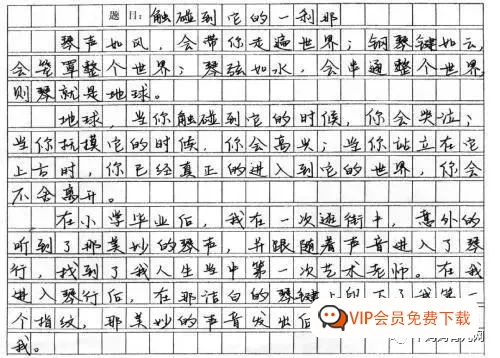 题目:触碰到它的一刹那
琴声如风,会带你走遍世界;钢琴键如云,
会笼罩整个世界;琴弦如水,会串通整个世界,
则琴就是地球。
地球,当你触碰到它的时候,你会哭泣;
当你抚摸它的时候,你会高兴;当你站立在它
上方时,你已经真正的进入到它的世界,你会
不舍离开。
在小学毕业后,我在一次逛街中,意外的
听到了那美妙的琴声,并跟随着声音进入了琴
行,找到了我人生当中第一次艺术老师。在我
进入琴行后,在那洁白的琴键上印下了我第一
个指纹,那美妙的声音发出后
我。
VIP会员免费下载